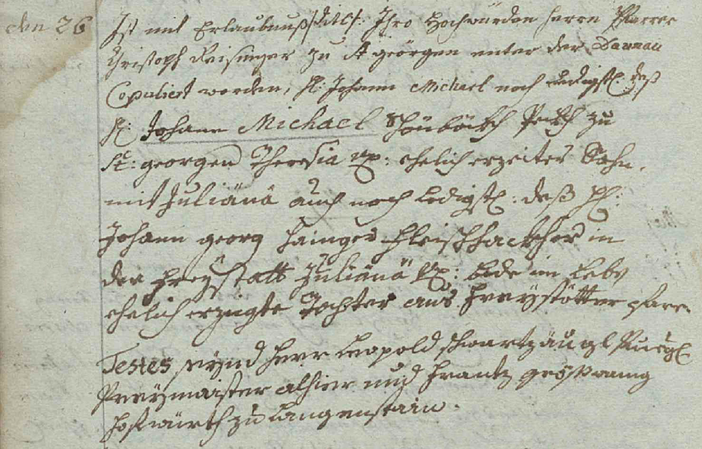 den 26 Ist mit Erlaubnuß /:titl:/ Ihro Hochwürden Herrn Pfarrer
Christoph Reisinger zu St georgen unter der Donnau
Copuliert worden, H: Johann Michael noch ledigst: deß
H: Johann Michael Schönböckh zu
St: georgen Theresia ux: ehelich erzeiter Sohn,
mit Juliäna auch noch ledigst: deß H:
Johann georg Hainger Fleischhackher in
der Freystatt Juliänä ux: bede im Leben
ehelich erzeigte Tochter aus Freystötter pfarr.
Testes seynd Herr Leopold
Preymaister alhier und Frantz
Hofwürth zu Langenstain.